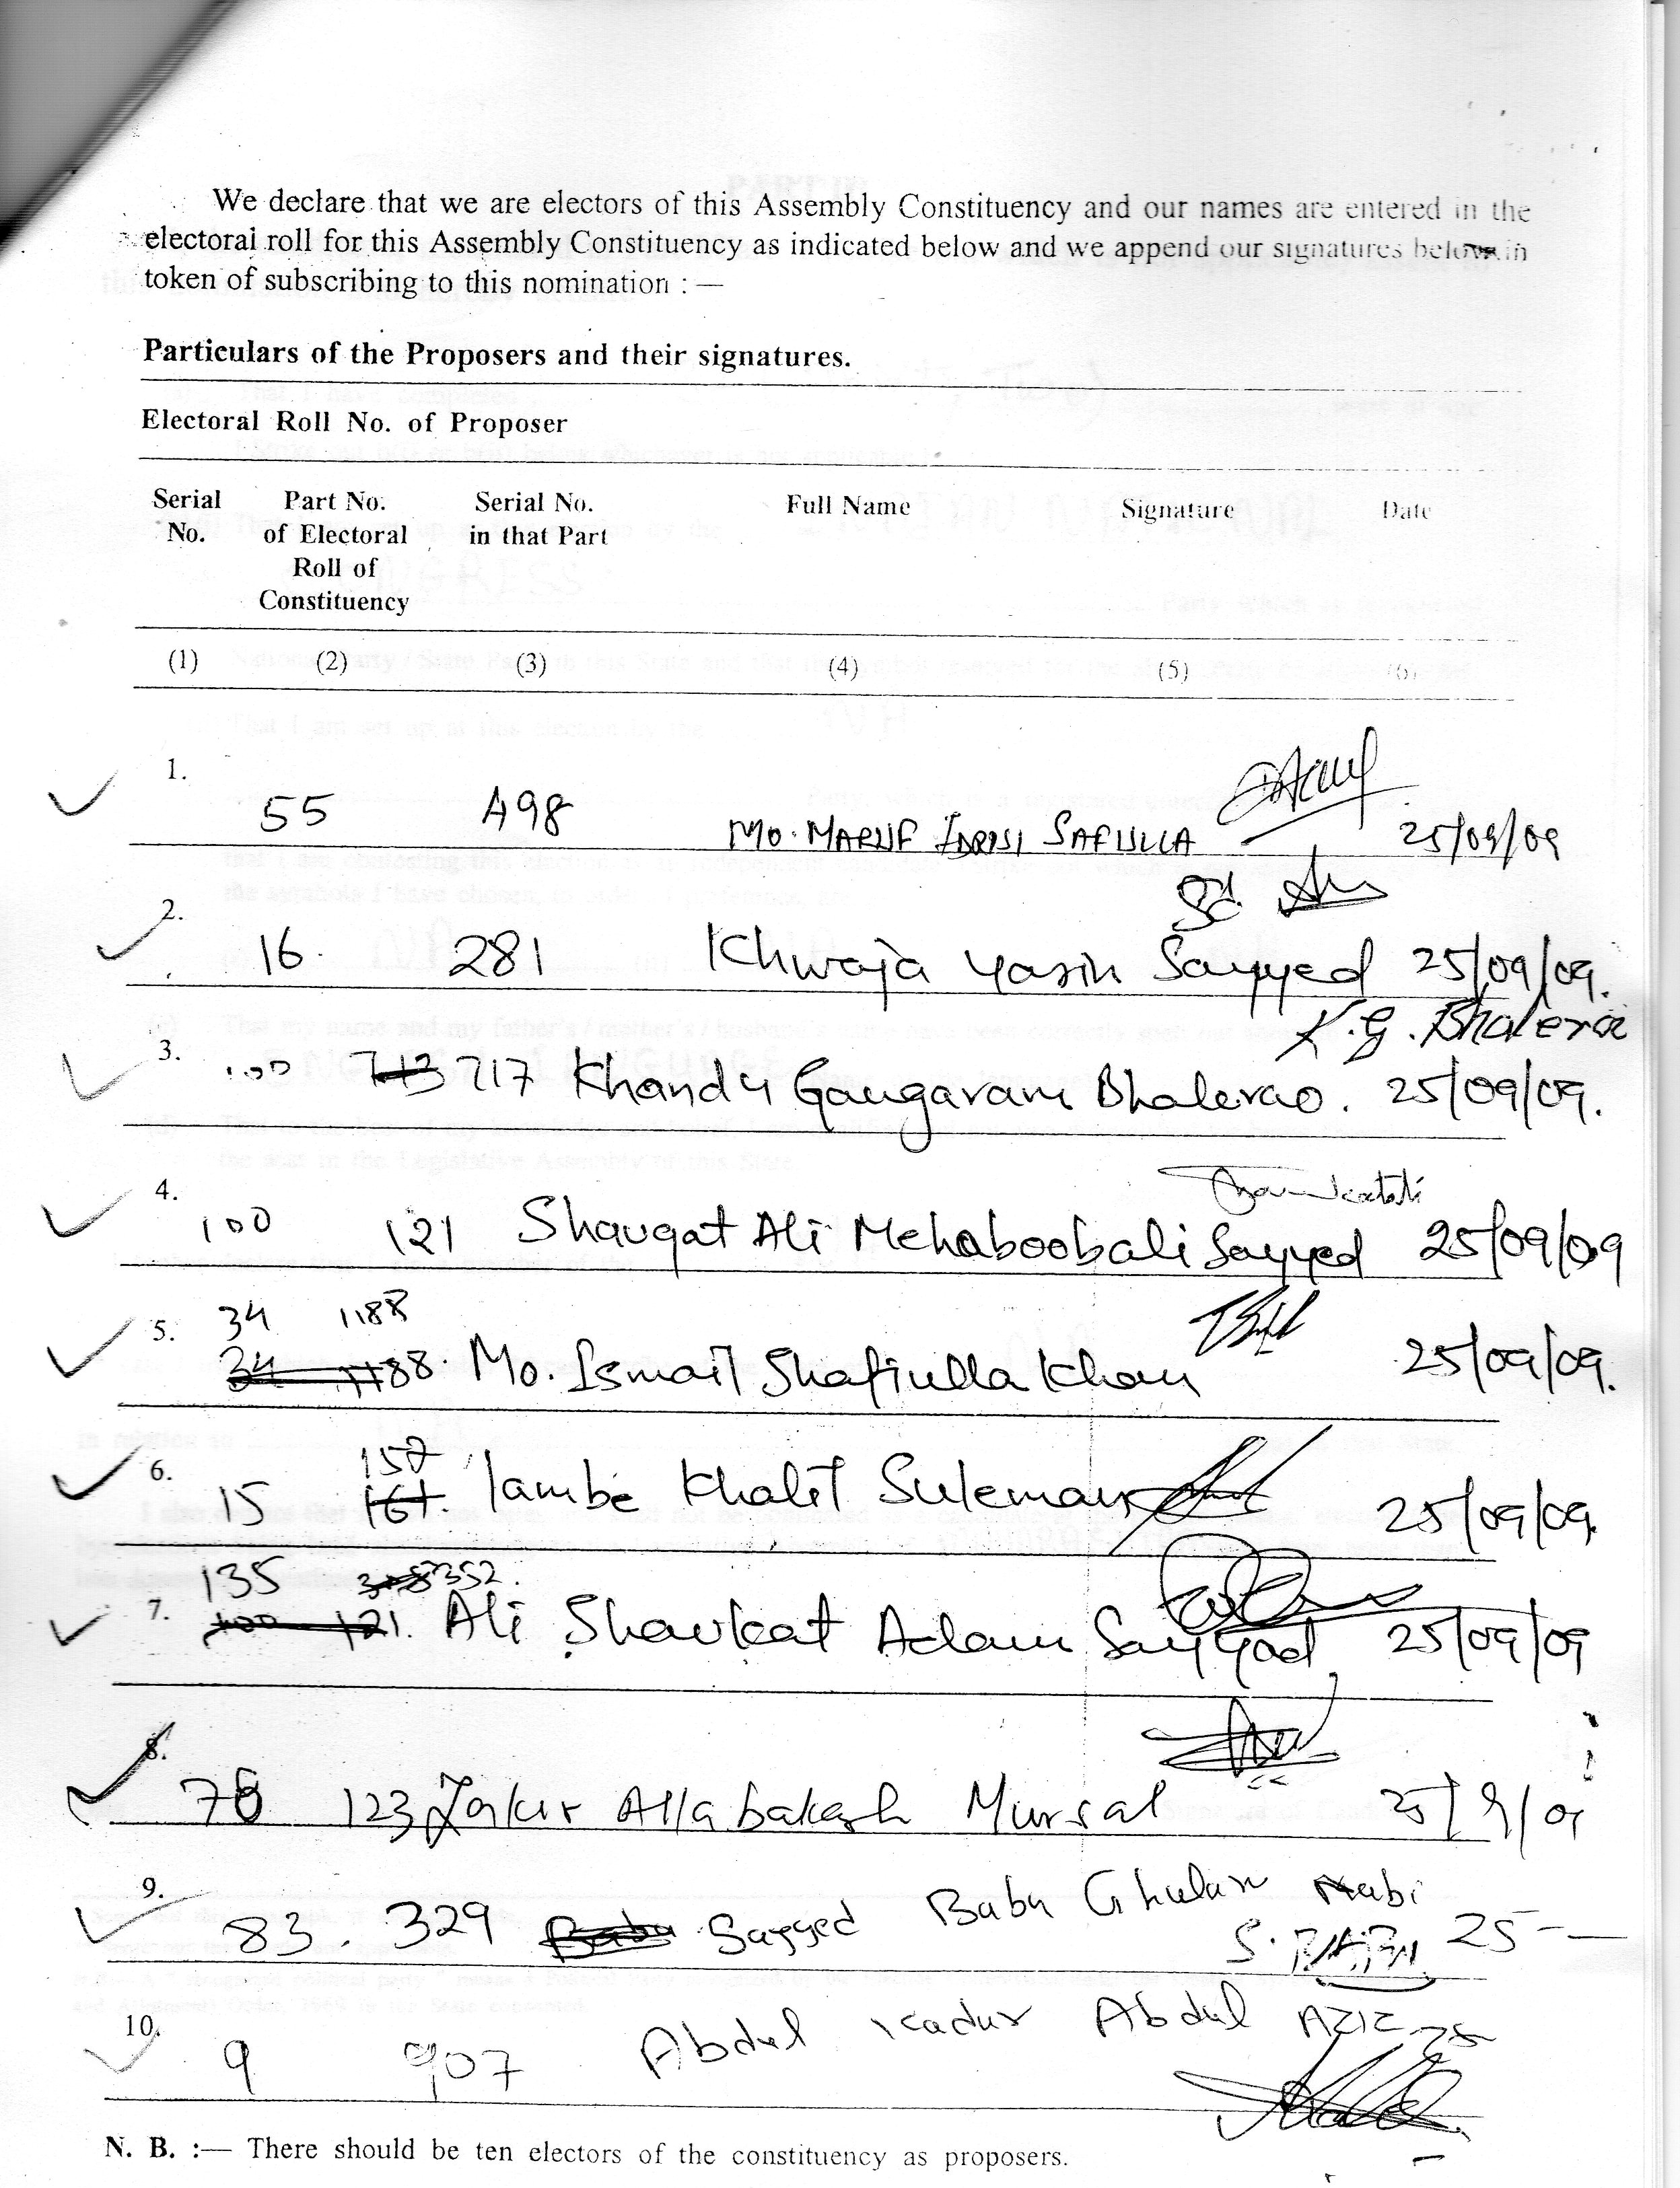 We declare that we are electors of this Assembly Constituency and our names are entered in the
electoral roll for this Assembly Constituency as indicated below and we append our signatures below in
token of subscribing to this nomination : —
Particulars of the Proposers and their signatures.
Electoral Roll No. of Proposer
Serial No. Part No. of Electoral Roll of Constituency Serial No. in that Part Full Name Signature Date
(1) (2) (3) (4) (5) (6)
1. 55 498 MO. MARUF IDRISI SAFIULLA 25/09/09
Sd.
2. 16. 281 Khwaja Yasin Sayyed 25/09/09.
K.G. Bhalerao
3. 100 713 717 Khandu Gangaram Bhalerao. 25/09/09.
4. 100 121 Shauqat Ali Mehaboobali Sayyed 25/09/09
34 1188
5. 34 1188. Mo. Ismail Shafiulla Khan 25/09/09.
157
6. 15 161. Tambe Khalil Suleman 25/09/09.
135 352.
7. 100 121. Ali Shaukat Adam Sayyad 25/09/09
8. 76 123 Zakir Allabaksh Mursal 25/9/09
9. 83. 329 Babu Sayyed Babu Ghulam Nabi 25 —
10. 9 907 Abdul Kadir Abdul Aziz 25
N. B. :— There should be ten electors of the constituency as proposers.